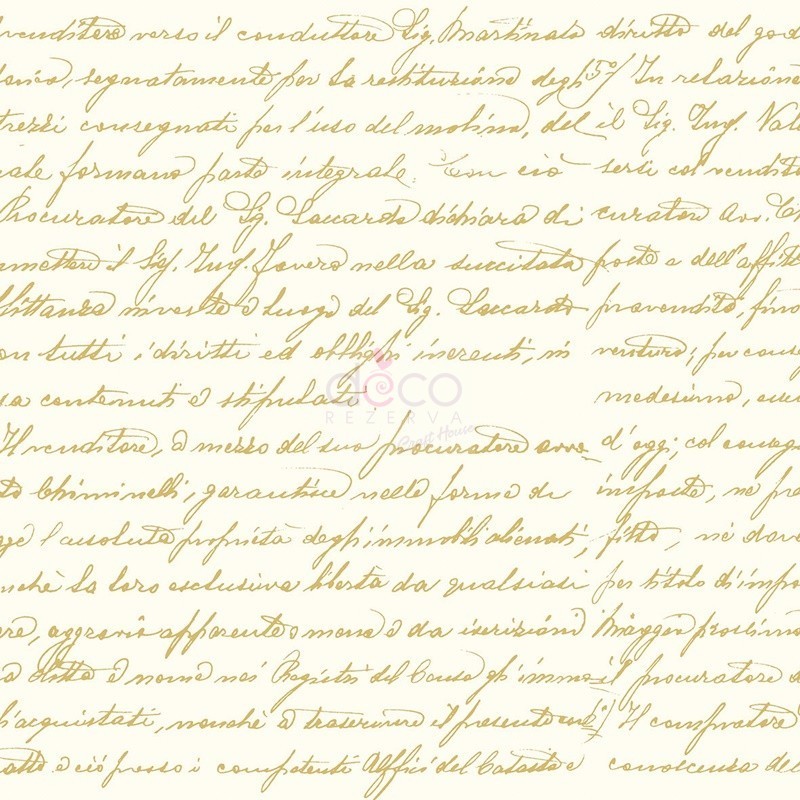 venditore verso il conduttore Sig. Martinato diritto del god
segnatamente per la restituzione degli 5°/ In relazione
trezzi consegnati per l'uso del molino, del il Sig. Ing. Val
formano parte integrale. Con ciò sersi col vendito
Procuratore del Sg. Saccardo dichiara di curatore Avv. C
mettere il Sig. Ing. Favero nella succitata poste e dell'affitt
fittanza investe e luogo del Sig. Saccardo provenditó, fino
on tutti i diritti ed obblighi inerenti, in venturo; per conse
deco
sa contenuti e stipulati medesimo,
REZERVA
Craft House
Il venditore, a mezzo del suo procuratore avvo d'oggi; col conseg
to Chiminelli, garantisce nelle forme di imposte, ne pre
ge l'assoluta proprietà degli immobili alienati, fitto, nè dov
nchè la loro esclusiva libertà da qualsiasi per titolo di impo
ere, aggravio apparente o meno e da iscrizioni Maggio prossimo
a ditta e nome nei Registri del Censo gli immo il procuratore d
l'acquistati, nonchè a trascrivere il presente con 6°/ Il compratore
atto e ciò presso i competenti Uffici del Catasto e conoscenza del